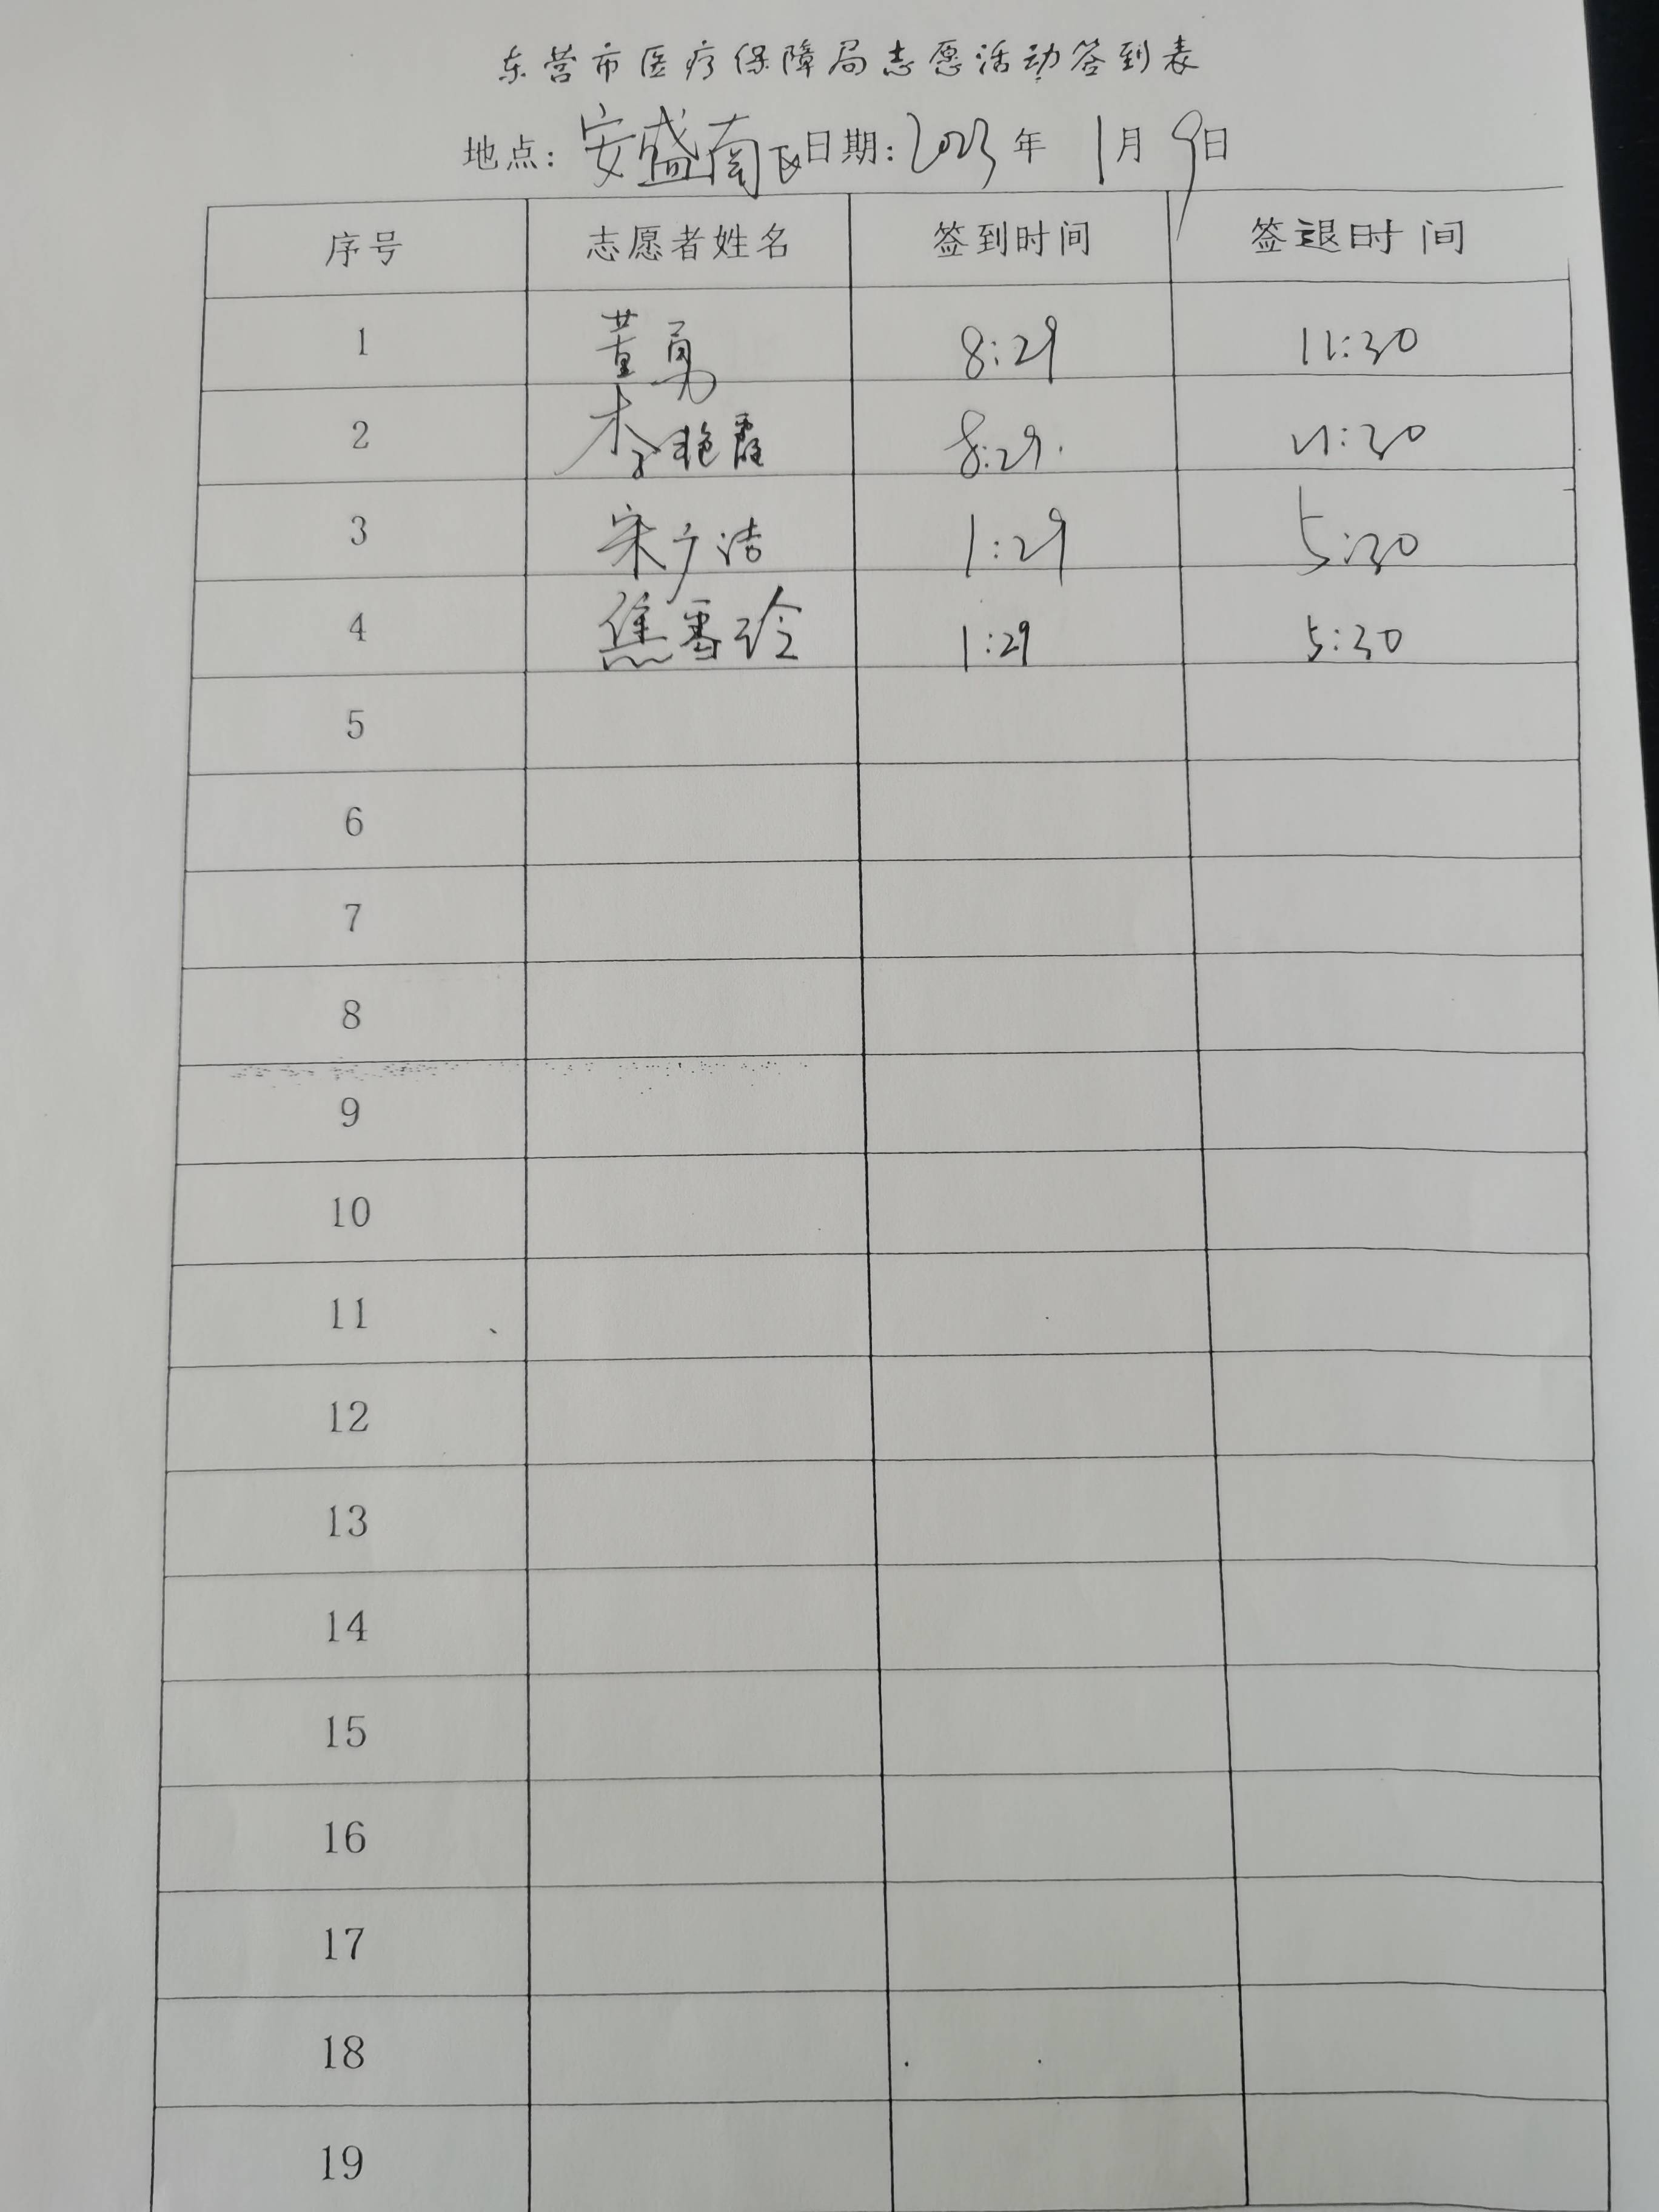 东营市医疗保障局志愿活动签到表
地点：安盛南区日期：2023年 1月 9日
序号 志愿者姓名 签到时间 签退时间
1 董勇 8:29 11:30
2 李艳霞 8:29. 11:30
3 宋广洁 1:29 5:30
4 焦雪玲 1:29 5:30
5
6
7
8
9
10
11
12
13
14
15
16
17
18
19